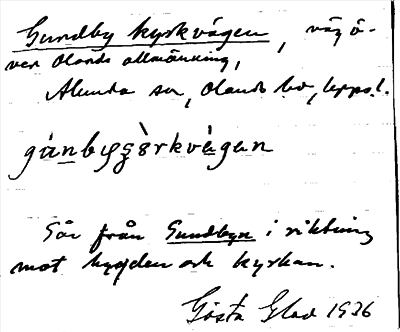 Gundby kyrkvägen, väg ö-
ver Olands allmänning,
Alunda sn, Olands hd, Uppsl.
Går från Gundbyn i riktning
mot bygden och kyrkan.
Gösta Elad 1926